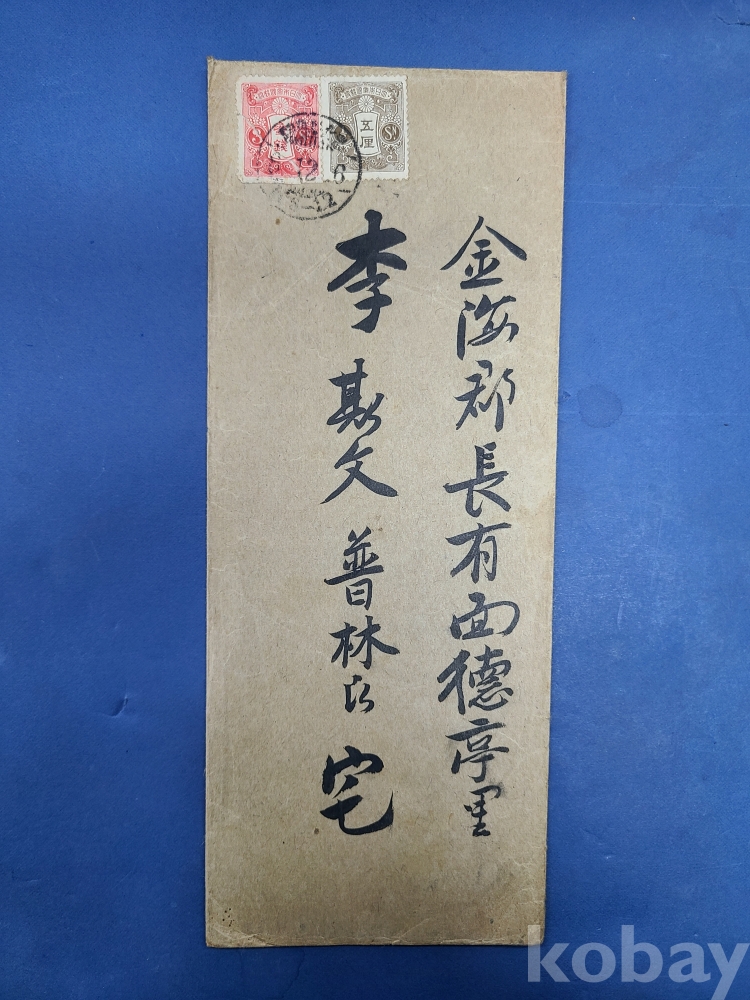 金海郡長有面德亭里
李斯文普林氏宅
五厘
12
6
kobay